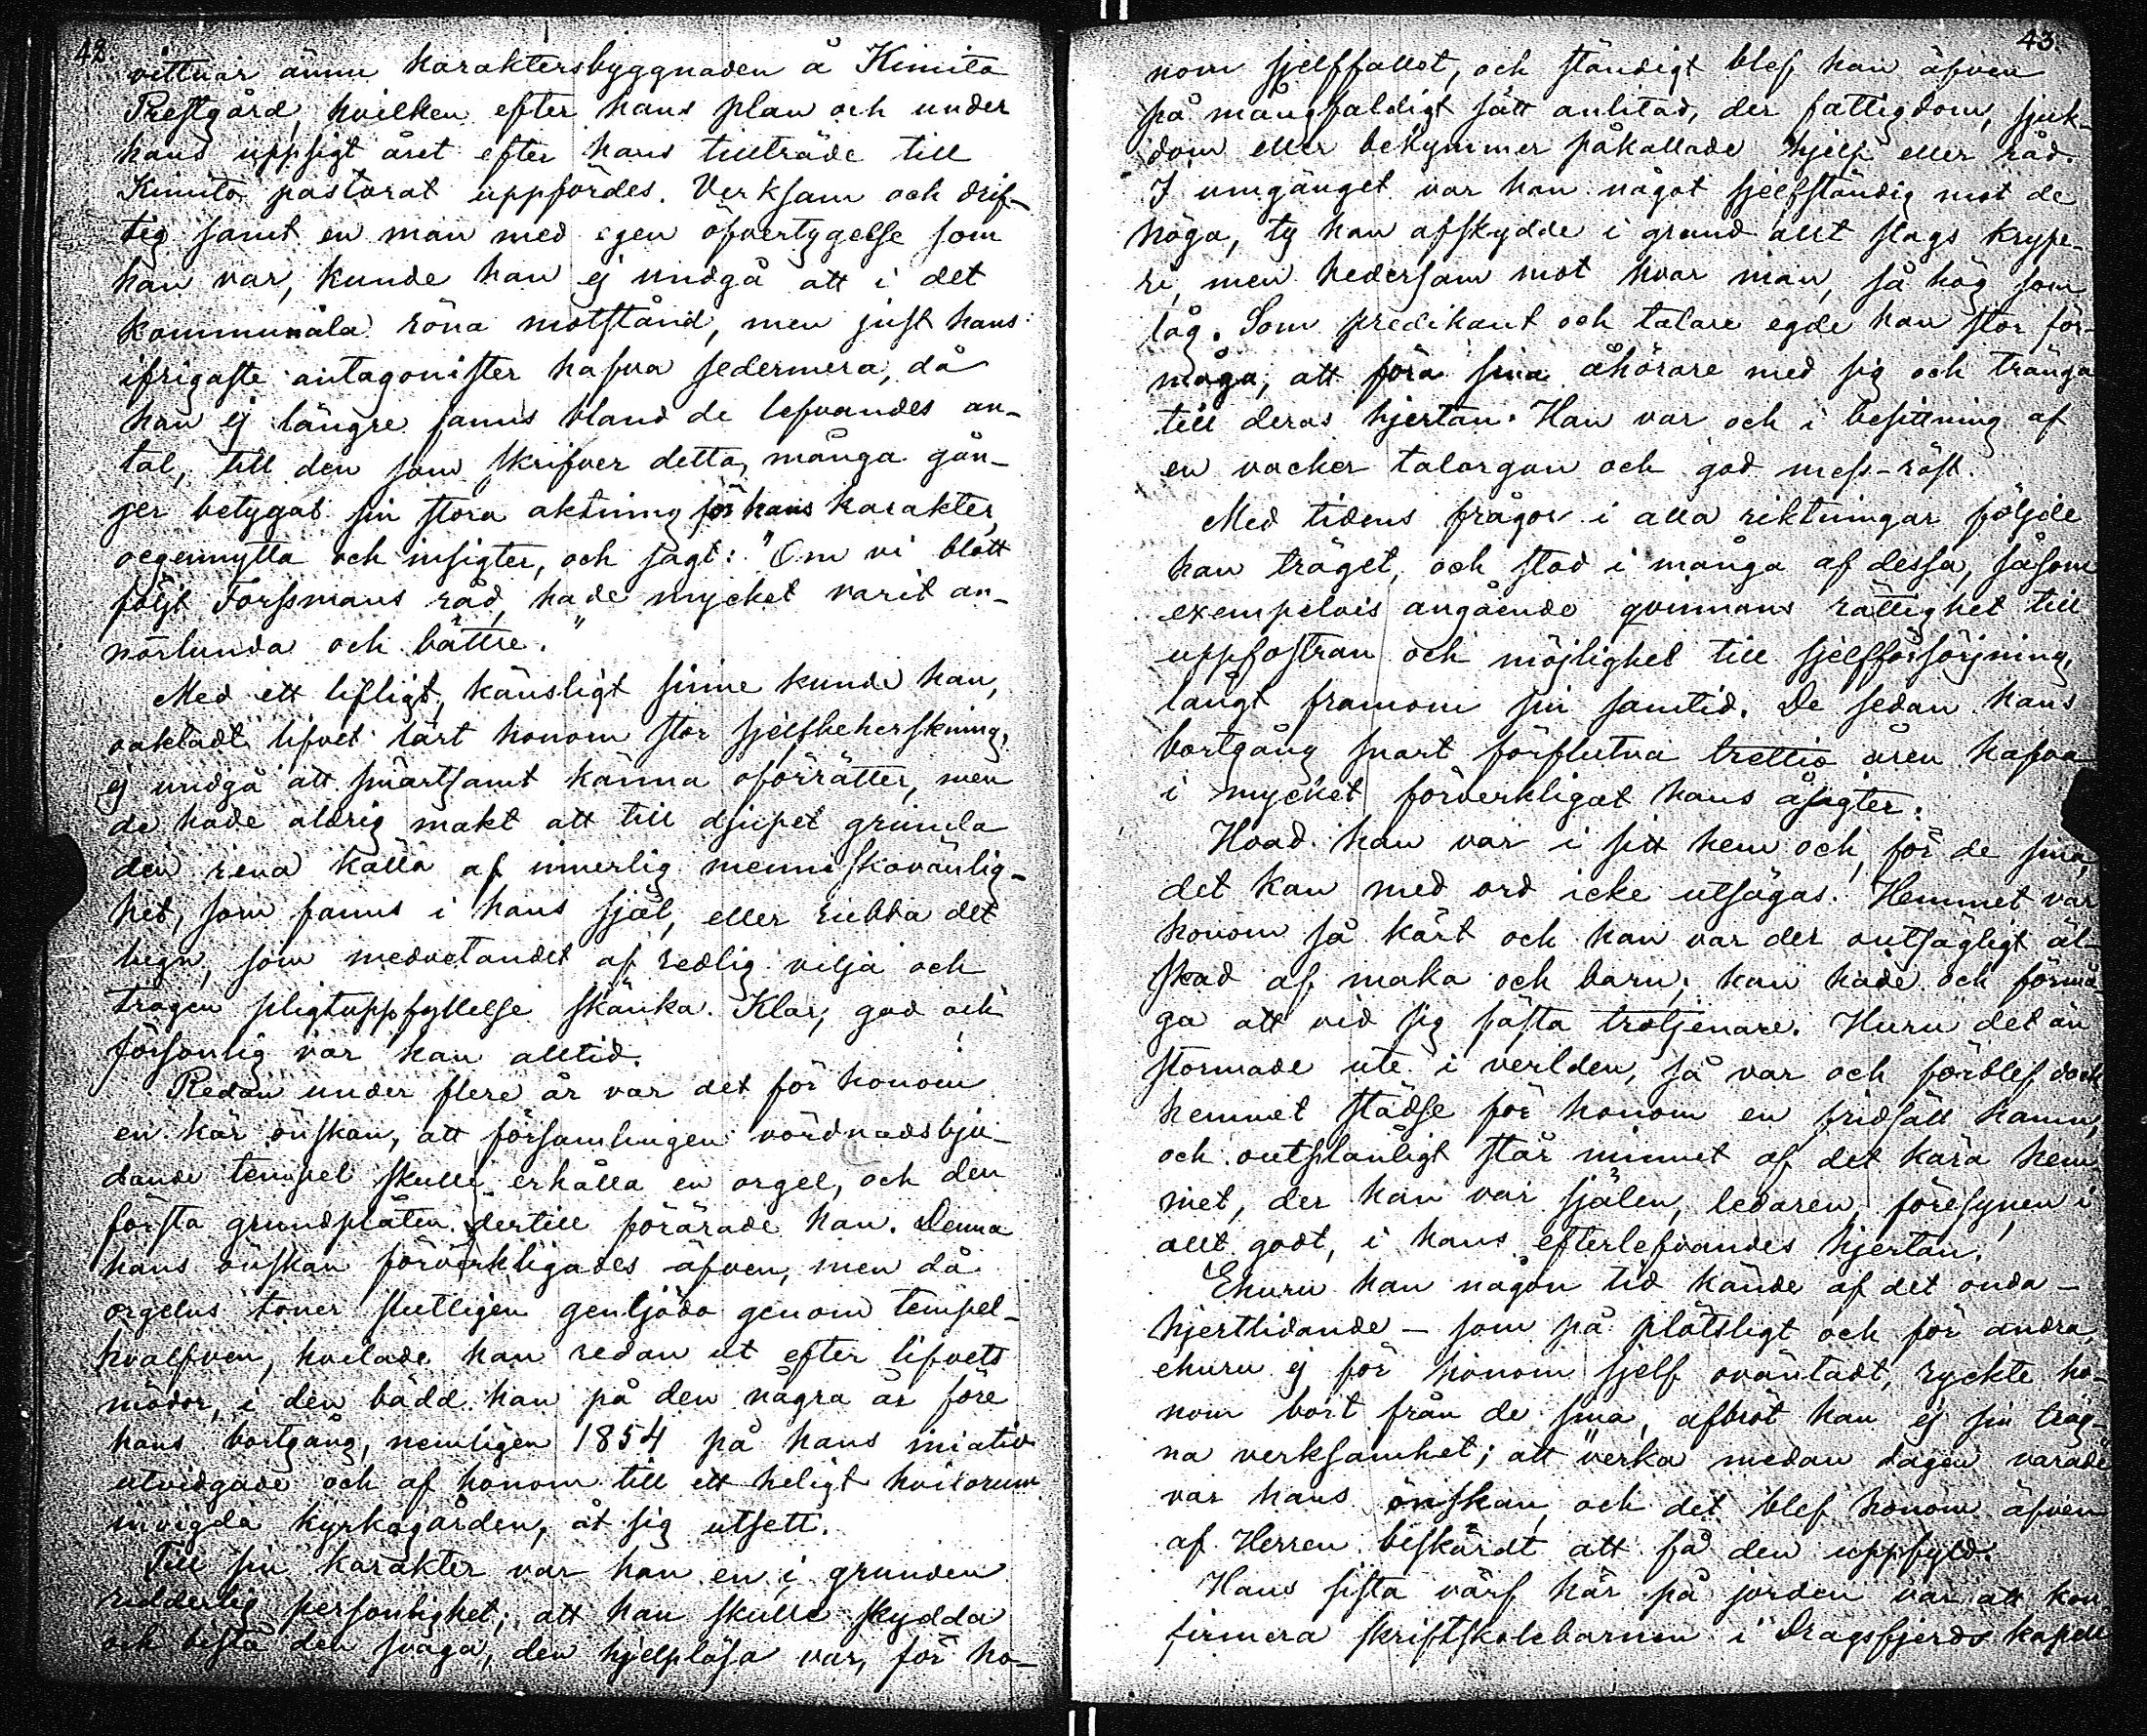 42.
vittnar ännu karaktersbyggnaden å Kimito
Prestgård, hvilken efter hans plan och under
hans uppsigt året efter hans tillträde till
Kimito pastorat uppfördes. Verksam och drif-
tig samt en man med egen öfvertygelse som
han var, kunde han ej undgå att i det
kommunala röna motstånd, men just hans
ifrigaste antagonister hafva sedermera, då
han ej längre fanns bland de lefvandes an-
tal, till den som skrifver detta, många gån-
ger betygat sin stora aktning för hans karakter,
oegennytta och insigter, och sagt: "Om vi blott
följt Forssmans råd, hade mycket varit an-
norlunda och bättre."
Med ett lifligt, känsligt sinne kunde han,
oaktadt lifvet lärt honom stor sjelfbeherskning,
ej undgå att smärtsamt känna oförrätter, men
de hade aldrig makt att till djupet grumla
den rena källa af innerlig menniskovänlig-
het, som fanns i hans själ, eller rubba det
lugn, som medvetandet af redlig vilja och
trogen pligtuppfyllelse skänka. Klar, god och
försonlig var han alltid.
Redan under flere år var det för honom
en kär önskan, att församlingen vördnadsbju-
dande tempel skulle erhålla en orgel, och den
första grundplåten dertill förärade han. Denna
hans önskan förverkligades äfven, men då
orgelns toner slutligen genljödo genom tempel-
hvalfven, hvilade han redan ut efter lifvets
mödor, i den bädd han på den några år före
hans bortgång, nemligen 1854 på hans iniativ
utvidgade och af honom till ett heligt hvilorum
invigda kyrkogården, åt sig utsett.
Till sin karakter var han en i grunden
ridderlig personlighet; att han skulle skydda
och bistå den svaga, den hjelplösa var, för ho-
43.
nom sjelffallet, och ständigt blef han äfven
på mångfaldigt sätt anlitad, der fattigdom, sjuk-
dom eller bekymmer påkallade hjelp eller råd.
I umgänget var han något sjelfständig mot de
höga, ty han afskydde i grund allt slags krype-
ri, men hedersam mot hvar man, så hög som
låg. Som predikant och talare egde han stor för-
måga, att föra sina åhörare med sig och tränga
till deras hjertan. Han var och i besittning af
en vacker talorgan och god mess-röst.
Med tidens frågor i alla riktningar följde
han träget, och stod i många af dessa, såsom
exempelvis angående qvinnans rättighet till
uppfostran och möjlighet till sjelfförsörjning,
långt framom sin samtid. De sedan hans
bortgång snart förflutna trettio åren hafva
i mycket förverkligat hans åsigter.
Hvad han var i sitt hem och för de sina,
det kan med ord icke utsägas. Hemmet var
honom så kärt och han var der outsägligt äl-
skad af maka och barn; han hade och förmå-
ga att vid sig fästa trotjenare. Huru det än
stormade ute i verlden, så var och förblef dock
hemmet städse för honom en fridsäll hamn,
och outplånligt står minnet af det kära hem-
met, der han var själen, ledaren, föresynen i
allt godt, i hans efterlefvandes hjertan.
Ehuru han någon tid kände af det onda –
hjertlidande – som så plötsligt och för andra,
ehuru ej för honom sjelf oväntadt, ryckte ho-
nom bort från de sina, afbröt han ej sin träg-
na verksamhet; att "verka medan dagen varade"
var hans önskan, och det blef honom äfven
af Herren beskärdt att få den uppfyld.
Hans sista värf här på jorden var att kon-
firmera skriftskolebarnen i Dragsfjerds kapell